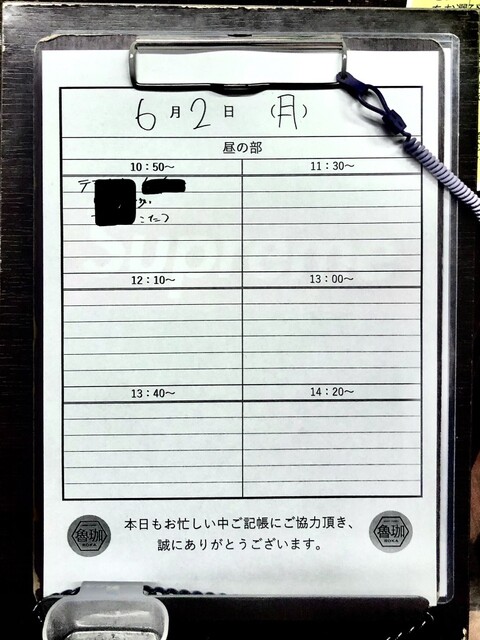 6月2日 (月)
昼の部
10：50〜 11：30〜
こたつ
12：10〜 13：00〜
13：40〜 14：20〜
本日もお忙しい中ご記帳にご協力頂き、
誠にありがとうございます。
魯珈 魯珈
ROKA ROKA